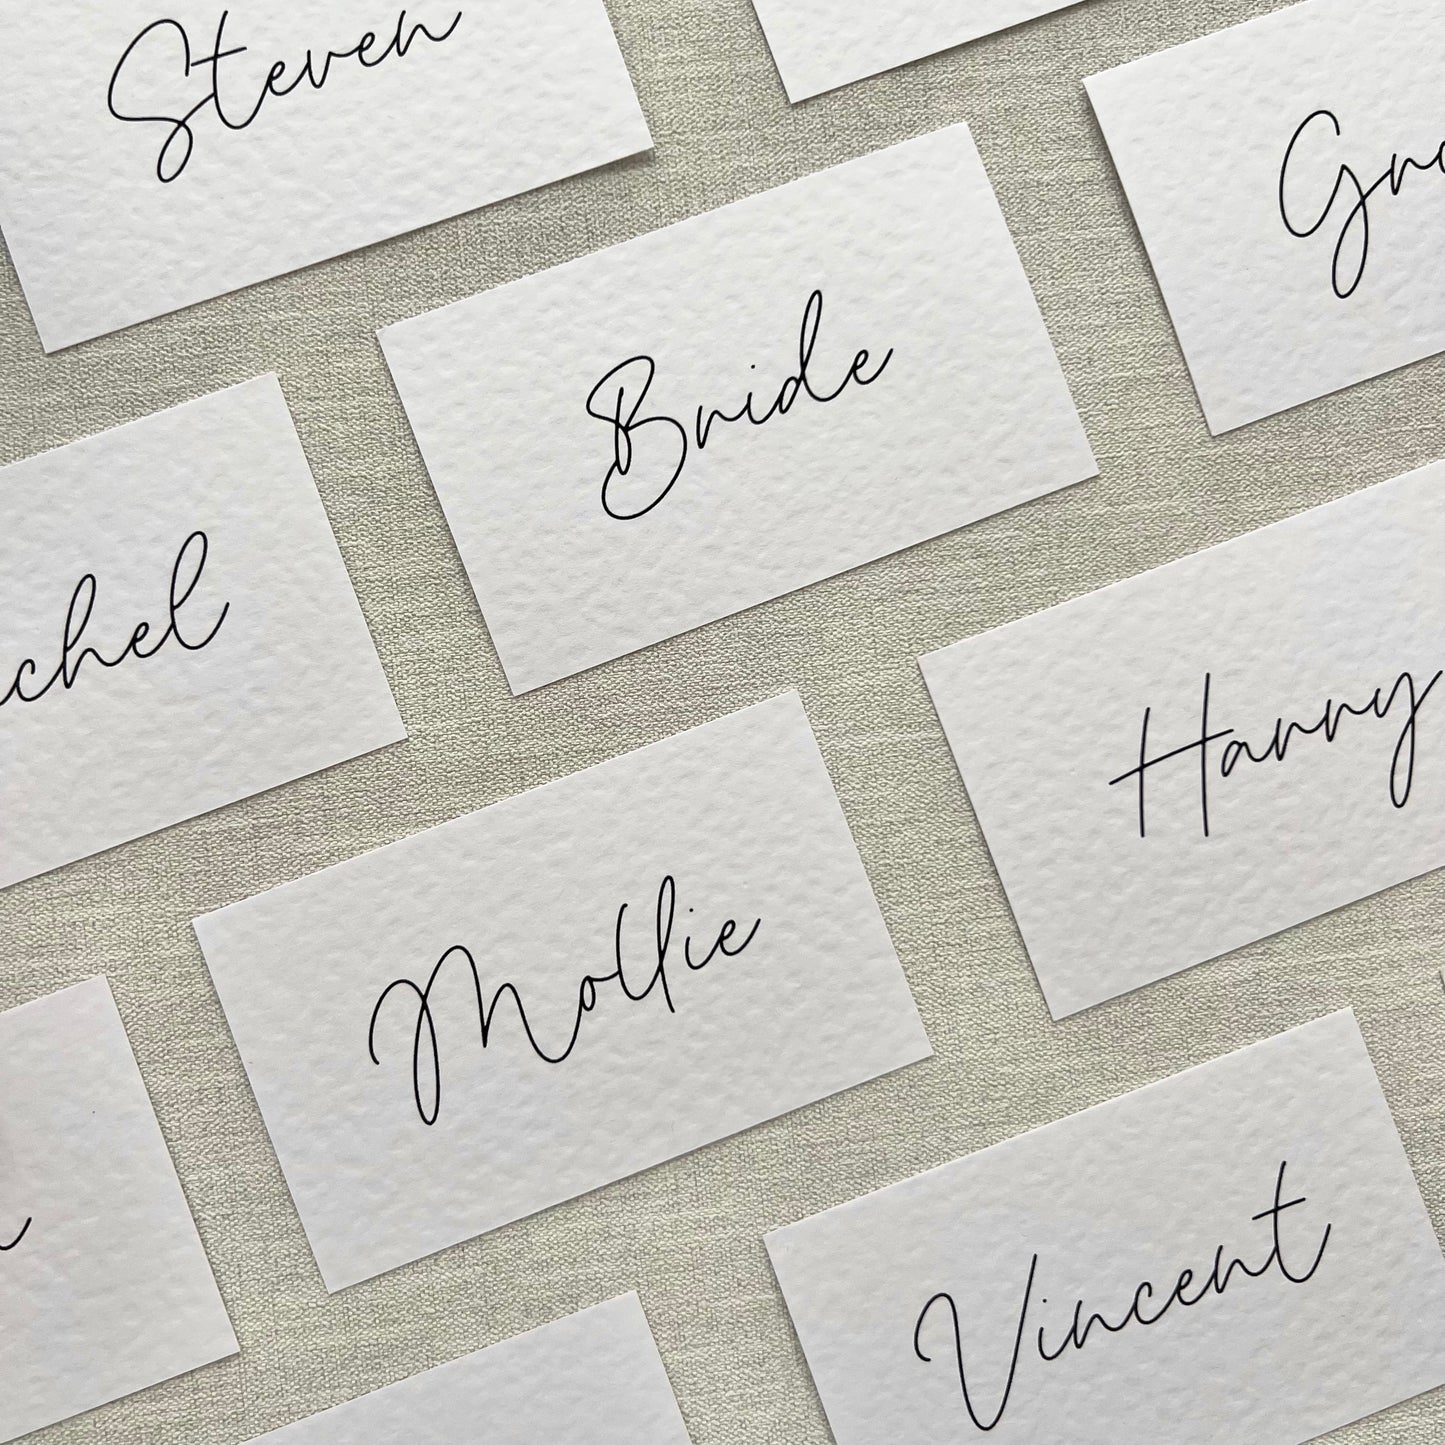 Steven
Bride
Harry
Mollie
Vincent